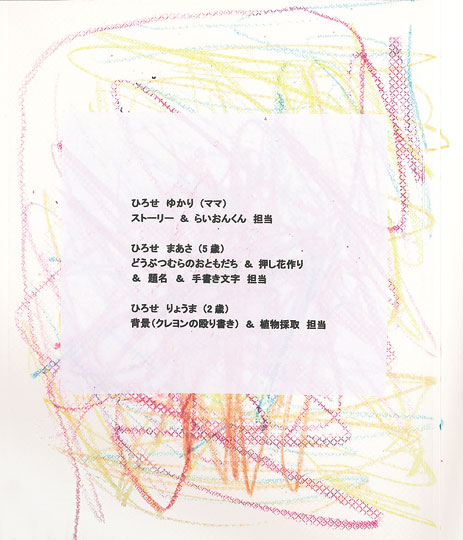 ひろせ　ゆかり（ママ）
ストーリー　＆　らいおんくん　担当
ひろせ　まあさ（５歳）
どうぶつむらのおともだち　＆　押し花作り
＆　題名　＆　手書き文字　担当
ひろせ　りょうま（２歳）
背景（クレヨンの殴り書き）　＆　植物採取　担当